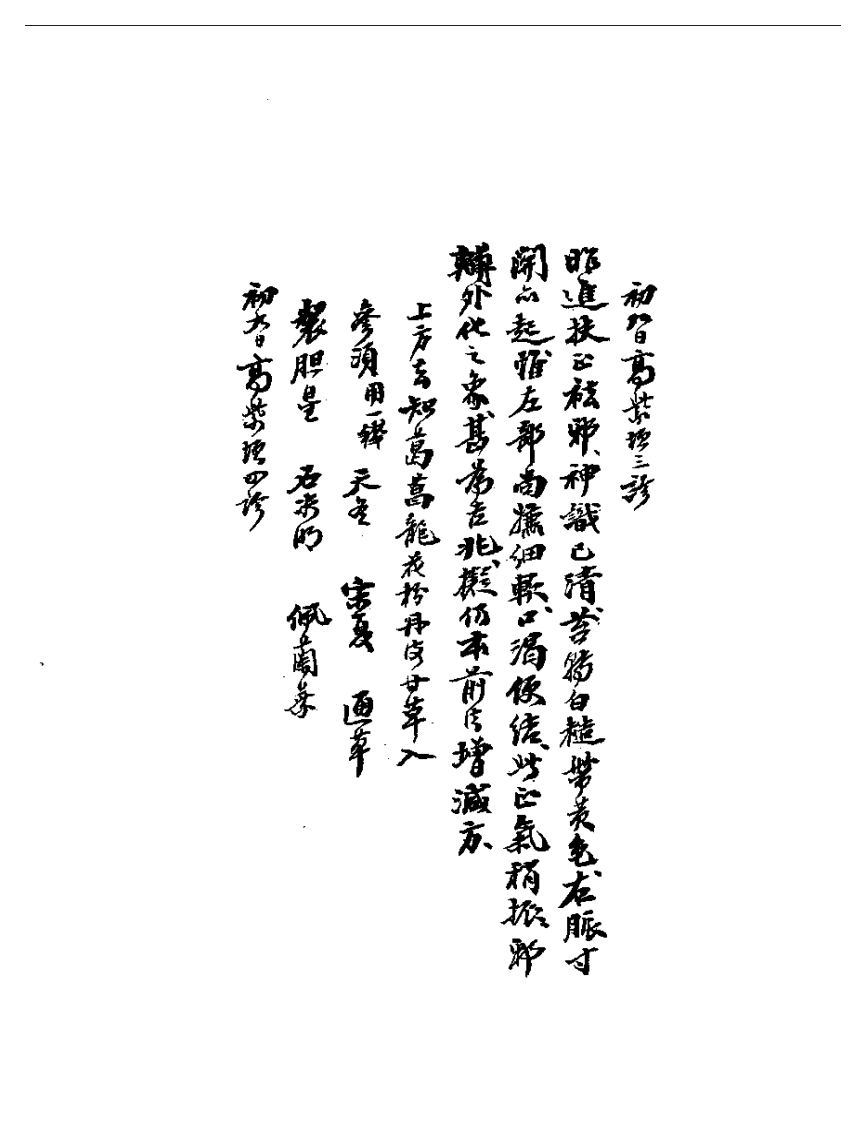 初八日高紫垣三診
昨進扶正祛邪、神識已清、苔猶白糙帶黃色、右脈寸
關亦起、雖左部尚濡細軟、口渴便結、此正氣稍振、邪
轉外化之象、甚為吉兆、擬仍本前法增減方、
上方去知葛菖龍花粉丹皮甘草入
參須用一錢 天冬 宋夏 通草
製胆星 石决明 佩蘭葉
初九日高紫垣四診